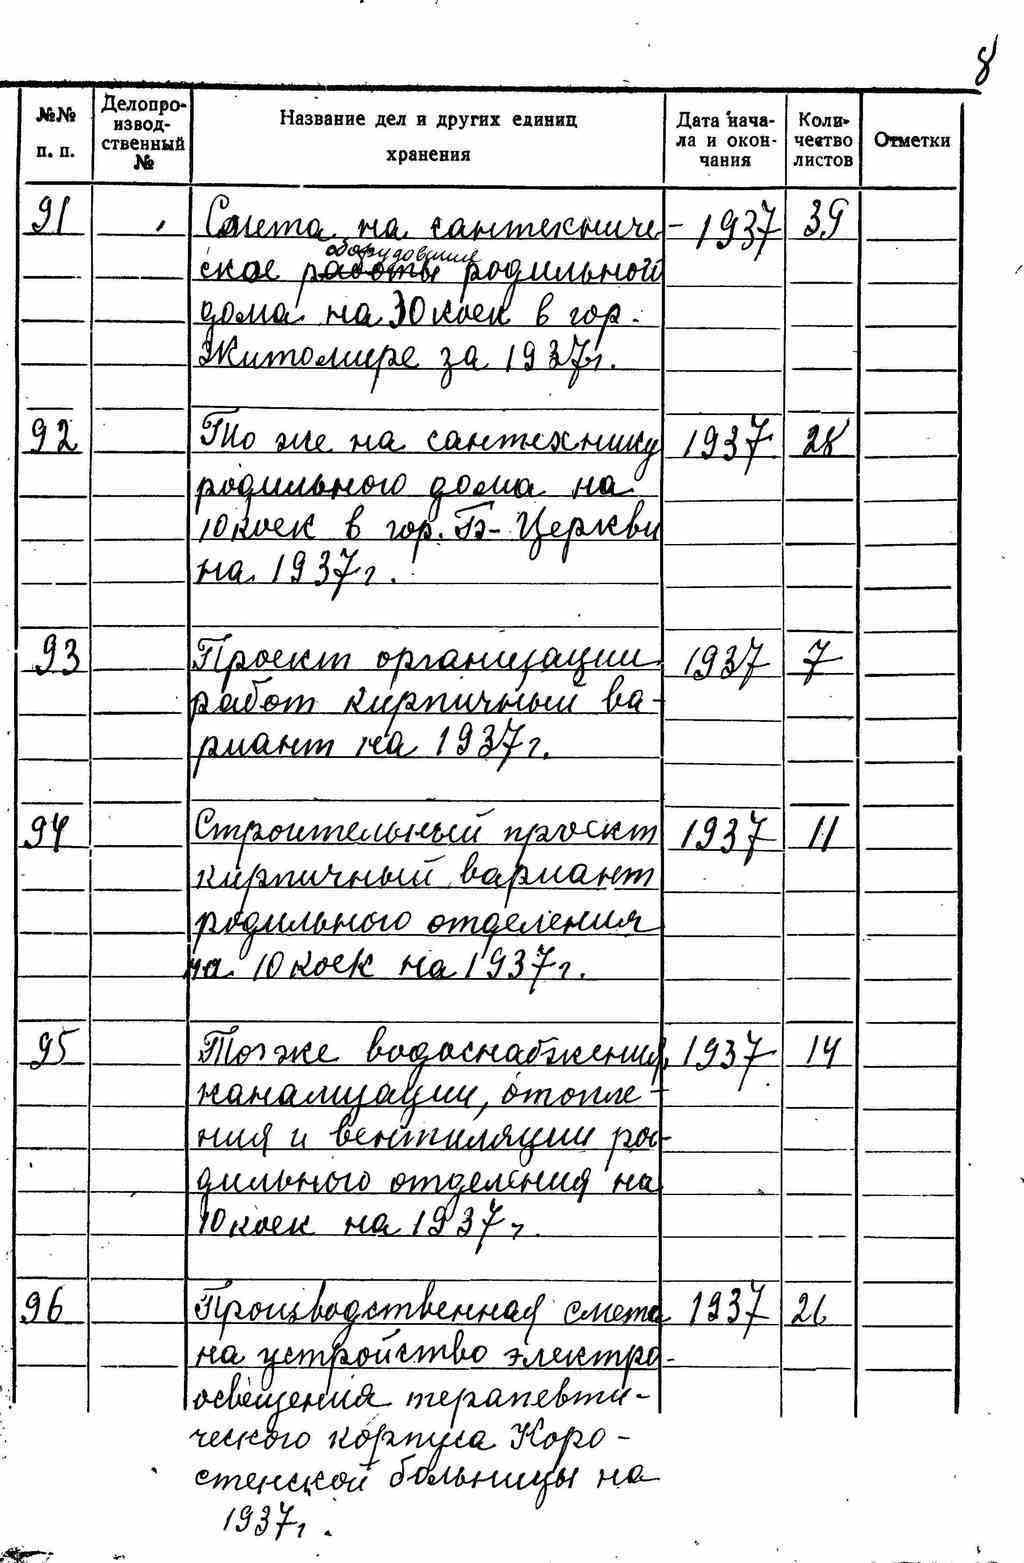 8
№№ п. п.
Делопроизвод-ственный №
Название дел и других единиц хранения
Дата нача-ла и окон-чания
Коли-чество листов
Отметки
91 Смета на сантехниче- 1937 39
оборудование
ское работы родильного
дома на 30 коек в гор.
Житомире за 1937г.
92 То же на сантехнику 1937 28
родильного дома на
10 коек в гор. Б-Церкви
на 1937г.
93 Проект организации 1937 7
работ кирпичный ва-
риант на 1937г.
94 Строительный проект 1937 11
кирпичный вариант
родильного отделения
на 10 коек на 1937г.
95 То же водоснабжения, 1937 14
канализации, отопле-
ния и вентиляции ро-
дильного отделения на
10 коек на 1937г.
96 Производственная смета 1937 26
на устройство электро-
освещения терапевти-
ческого корпуса Коро-
стенской больницы на
1937г.